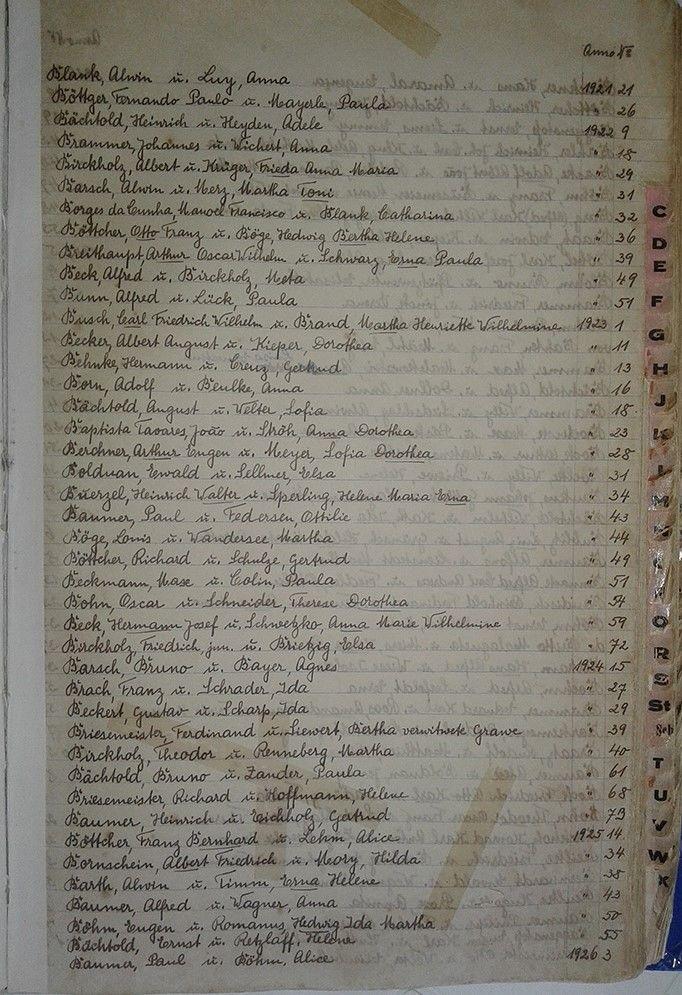 Anno No
Blank, Alwin u. Luy, Anna 1921 21
Böttger, Fernando Paulo u. Mayerle, Paula " 26
Bächtold, Heinrich u. Heyden, Adele 1922 9
Brammer, Johannes u. Wichert, Anna " 18
Birckholz, Albert u. Krüger, Frieda Anna Maria " 29
Barsch, Alwin u. Merz, Martha Toni " 31
Borges da Cunha, Manoel Francisco u. Blank, Catharina " 32
Böttcher, Otto Franz u. Böge, Hedwig Bertha Helene " 36
Breithaupt Arthur Oscar Wilhelm u. Schwarz, Erna Paula " 39
Beck, Alfred u. Birckholz, Meta " 49
Bunn, Alfred u. Lück, Paula " 51
Busch, Carl Friedrich Wilhelm u. Brand, Martha Henriette Wilhelmine 1923 1
Becker, Albert August u. Kieper, Dorothea " 11
Behnke, Hermann u. Creuz, Gertrud " 13
Born, Adolf u. Beulke, Anna " 16
Bächtold, August u. Welter, Sofia " 18
Baptista Tavares, João u. Ströh, Anna Dorothea " 23
Berchner, Arthur Eugen u. Meyer, Sofia Dorothea " 28
Bolduan, Ewald u. Sellmer, Elsa " 31
Buerzel, Heinrich Walter u. Sperling, Helene Maria Erna " 34
Baumer, Paul u. Federsen, Ottilie " 43
Böge, Louis u. Wandersee, Martha " 44
Böttcher, Richard u. Schulze, Gertrud " 49
Beckmann, Max u. Colin, Paula " 51
Bohn, Oscar u. Schneider, Therese Dorothea " 54
Beck, Hermann Josef u. Schwetzko, Anna Marie Wilhelmine " 59
Birckholz, Friedrich, jun. u. Brietzig, Elsa " 72
Barsch, Bruno u. Bayer, Agnes 1924 15
Brach, Franz u. Schrader, Ida " 27
Beckert, Gustav u. Scharp, Ida " 29
Briesemeister, Ferdinand u. Siewert, Bertha verwitwete Grawe " 39
Birckholz, Theodor u. Renneberg, Martha " 40
Bächtold, Bruno u. Zander, Paula " 61
Briesemeister, Richard u. Hoffmann, Helene " 68
Baumer, Heinrich u. Eichholz, Gertrud " 73
Böttcher, Franz Bernhard u. Lehm, Alice 1925 14
Bornschein, Albert Friedrich u. Mory, Hilda " 34
Barth, Alwin u. Timm, Erna Helene " 38
Baumer, Alfred u. Wagner, Anna " 43
Böhm, Eugen u. Romanus, Hedwig Ida Martha " 50
Bächtold, Ernst u. Retzlaff, Helene " 55
Baumer, Paul u. Böhm, Alice 1926 3
C
D
E
F
G
H
J
K
L
M
O
R
S
St
Sch
T
U
V
W